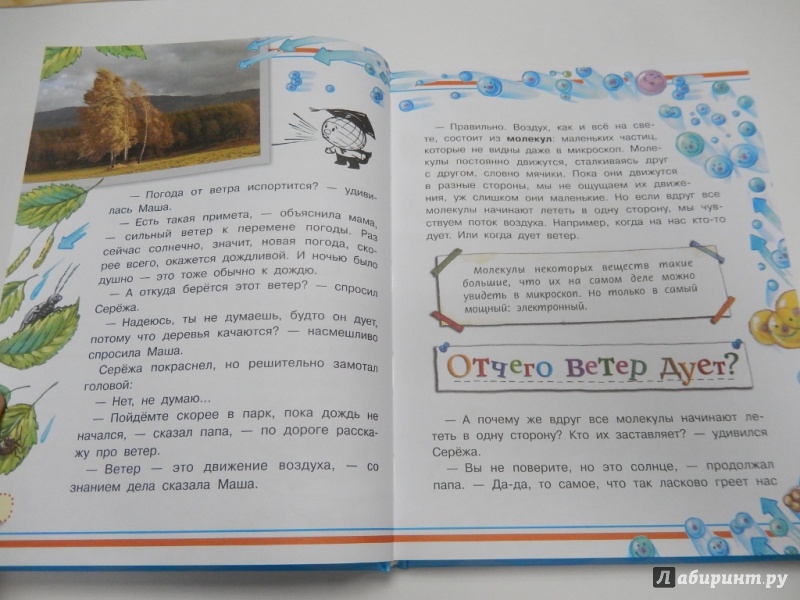 — Погода от ветра испортится? — удиви-
лась Маша.
— Есть такая примета, — объяснила мама,
— сильный ветер к перемене погоды. Раз
сейчас солнечно, значит, новая погода, ско-
рее всего, окажется дождливой. И ночью было
душно — это тоже обычно к дождю.
— А откуда берётся этот ветер? — спросил
Серёжа.
— Надеюсь, ты не думаешь, будто он дует,
потому что деревья качаются? — насмешливо
спросила Маша.
Серёжа покраснел, но решительно замотал
головой:
— Нет, не думаю...
— Пойдёмте скорее в парк, пока дождь не
начался, — сказал папа, — по дороге расска-
жу про ветер.
— Ветер — это движение воздуха, — со
знанием дела сказала Маша.
— Правильно. Воздух, как и всё на све-
те, состоит из молекул: маленьких частиц,
которые не видны даже в микроскоп. Моле-
кулы постоянно движутся, сталкиваясь друг
с другом, словно мячики. Пока они движутся
в разные стороны, мы не ощущаем их движе-
ния, уж слишком они маленькие. Но если вдруг все
молекулы начинают лететь в одну сторону, мы чув-
ствуем поток воздуха. Например, когда на нас кто-то
дует. Или когда дует ветер.
Молекулы некоторых веществ такие
большие, что их на самом деле можно
увидеть в микроскоп. Но только в самый
мощный: электронный.
Отчего ветер дует?
— А почему же вдруг все молекулы начинают ле-
теть в одну сторону? Кто их заставляет? — удивился
Серёжа.
— Вы не поверите, но это солнце, — продолжал
папа. — Да-да, то самое, что так ласково греет нас
Лабиринт.ру